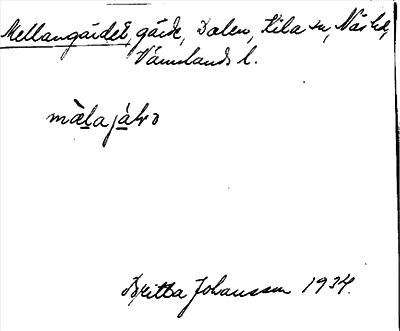 Mellangärdet, gärde, Dalen, Kila sn, Näs hd,
Värmlands l.
màlajáḷvɜ
Britta Johansson 1934.